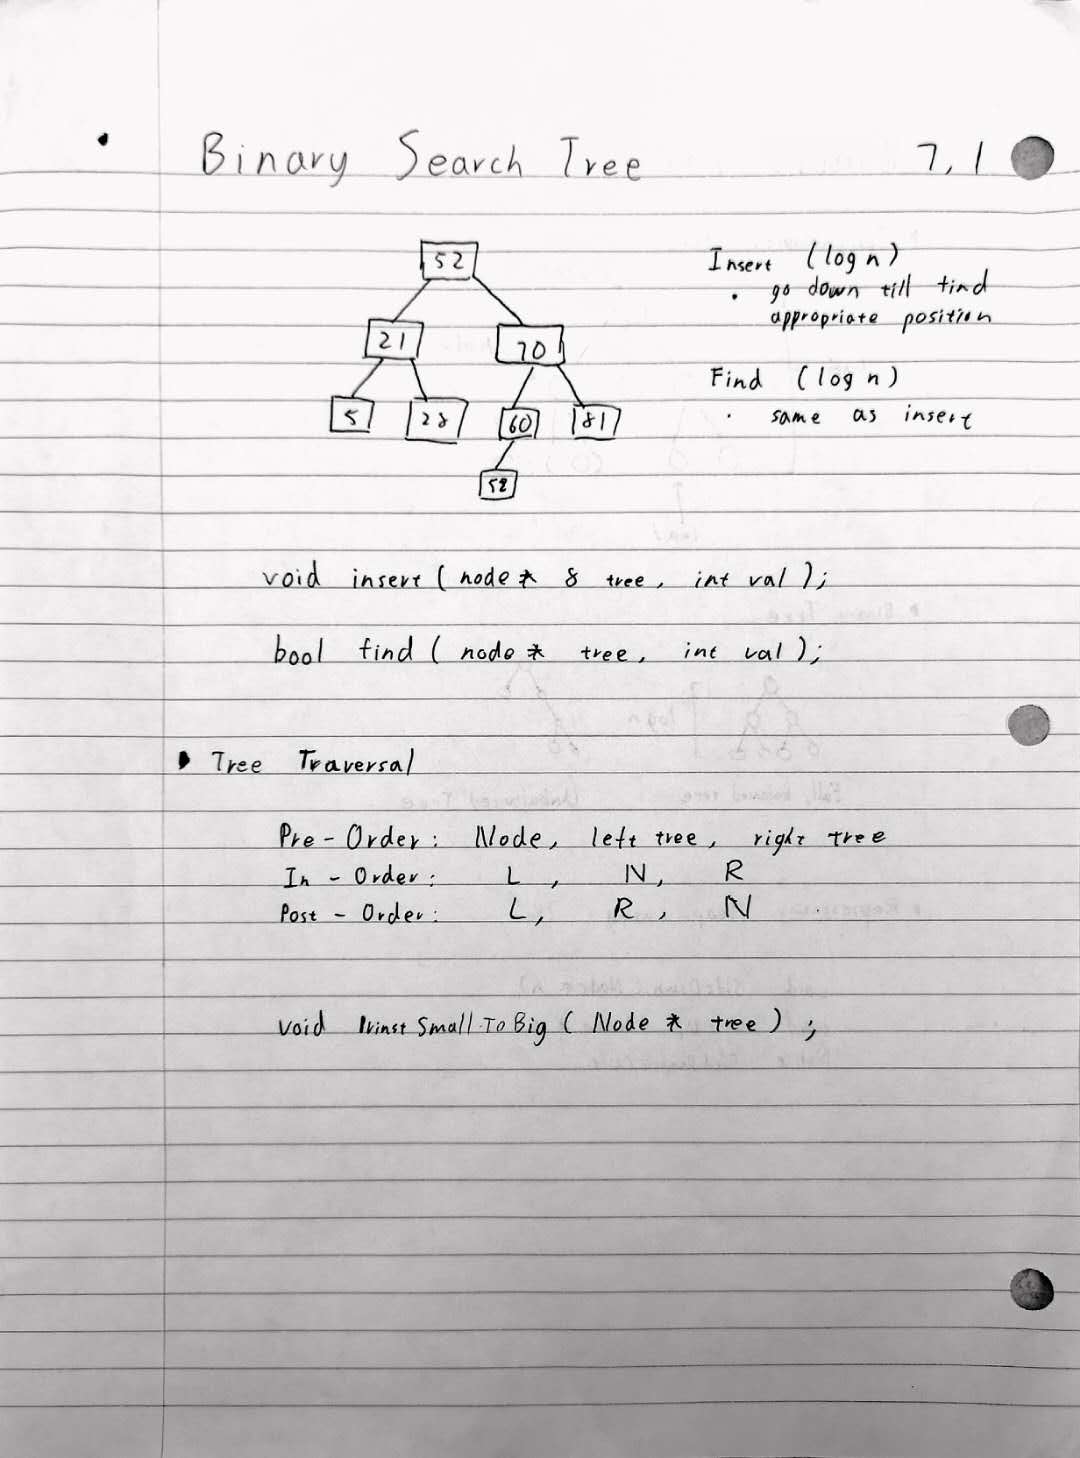 Binary Search Tree 7, 1
52
21 70
5 28 60 81
58
Insert (log n)
• go down till find
appropriate position
Find (log n)
• same as insert
void insert ( node * & tree, int val );
bool find ( node * tree, int val );
Tree Traversal
Pre - Order: Node, left tree, right tree
In - Order: L, N, R
Post - Order: L, R, N
void SmallToBig ( Node * tree ) ;